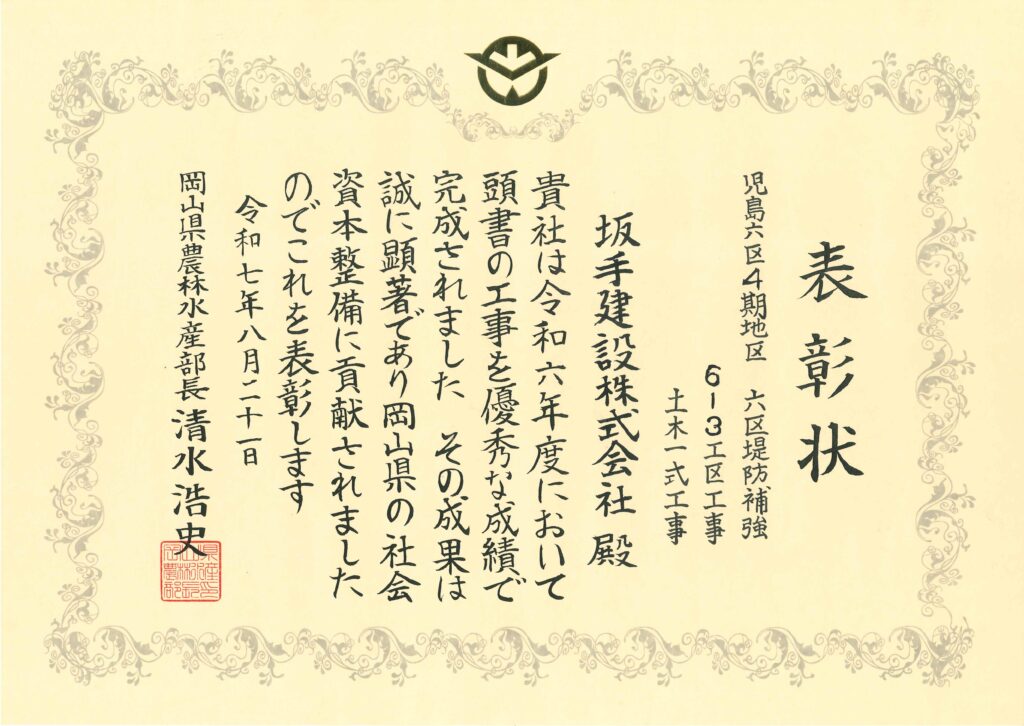 表彰状
児島六区4期地区 六区堤防補強
6-3工区工事
土木一式工事
坂手建設株式会社 殿
貴社は令和六年度において
頭書の工事を優秀な成績で
完成されました その成果は
誠に顕著であり岡山県の社会
資本整備に貢献されました
のでこれを表彰します
令和七年八月二十一日
岡山県農林水産部長 清水浩史